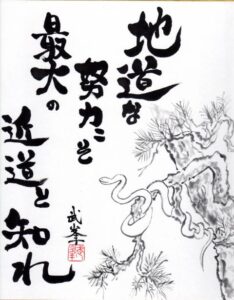 地道な
努力こそ
最大の
近道と知れ
武峯